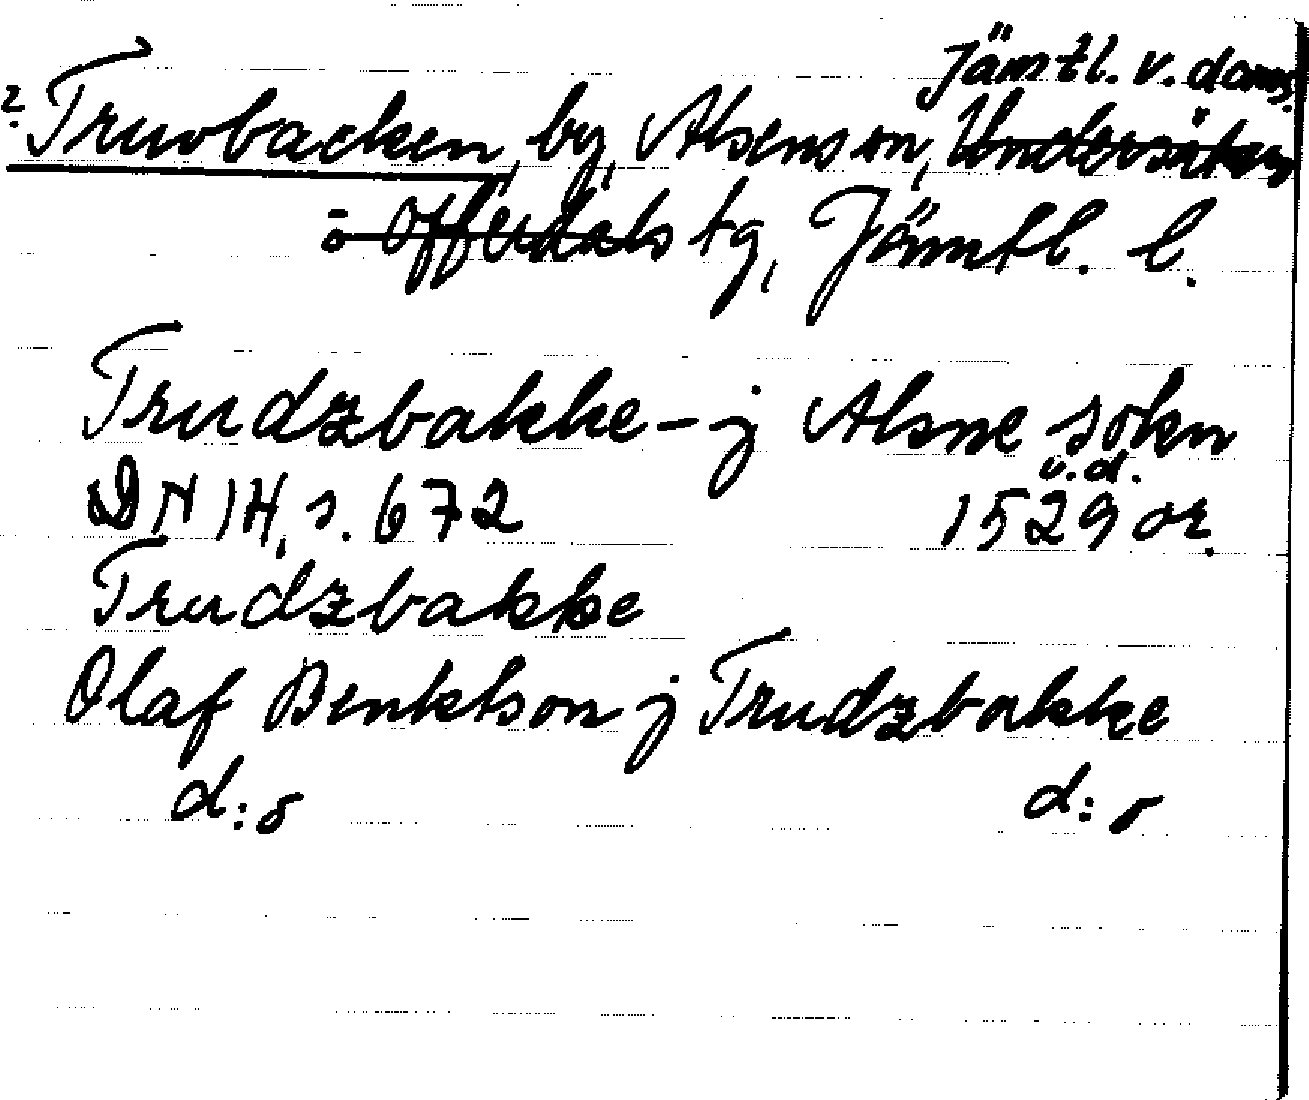 Jämtl. v. doms.
? Truvbacken, by, Alsens sn, Undersåkers
o Offerdals tg, Jämtl. l.
Trudzbakke – j Alsne sokn
DN 14, s. 672 1529 or.
u.d.
Trudzbakke
Olaf Benktson j Trudzbakke
d:o d:o